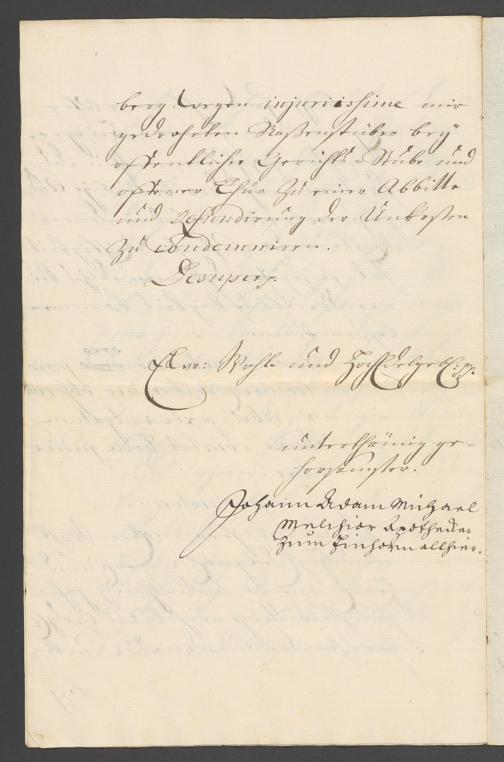 berg wegen injuriissime mir
gedroheten Naßenstüber bey
offentlicher Gerichts-Stube und
offener Thür zu einer Abbitte
und Refundierung der Unkosten
zu condemniren.
Desuper p.
Ewr: Wohl- und HochEdelgeb:
unterthänig ge-
horsamster.
Johann Adam Michael
Melchior Apothecker
zum Einhorn allhier.